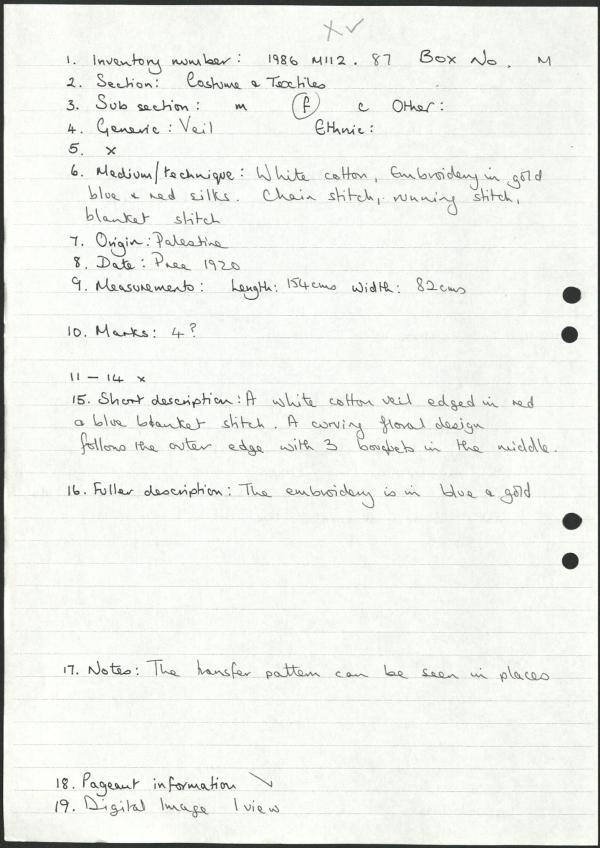 x✓
1. Inventory number: 1986 M112. 87 Box No. M
2. Section: Costume & Textiles
3. Sub section: m f c Other:
4. Generic: Veil Ethnic:
5. x
6. Medium/technique: White cotton, Embroidery in gold
blue & red silks. Chain stitch, running stitch,
blanket stitch
7. Origin: Palestine
8. Date: Pree 1920
9. Measurements: Length: 154cms Width: 82cms
10. Marks: 4?
11 – 14 x
15. Short description: A white cotton veil edged in red
& blue blanket stitch. A curving floral design
follows the outer edge with 3 boquets in the middle.
16. Fuller description: The embroidery is in blue & gold
17. Notes: The transfer pattern can be seen in places
18. Pageant information
19. Digital Image 1 view